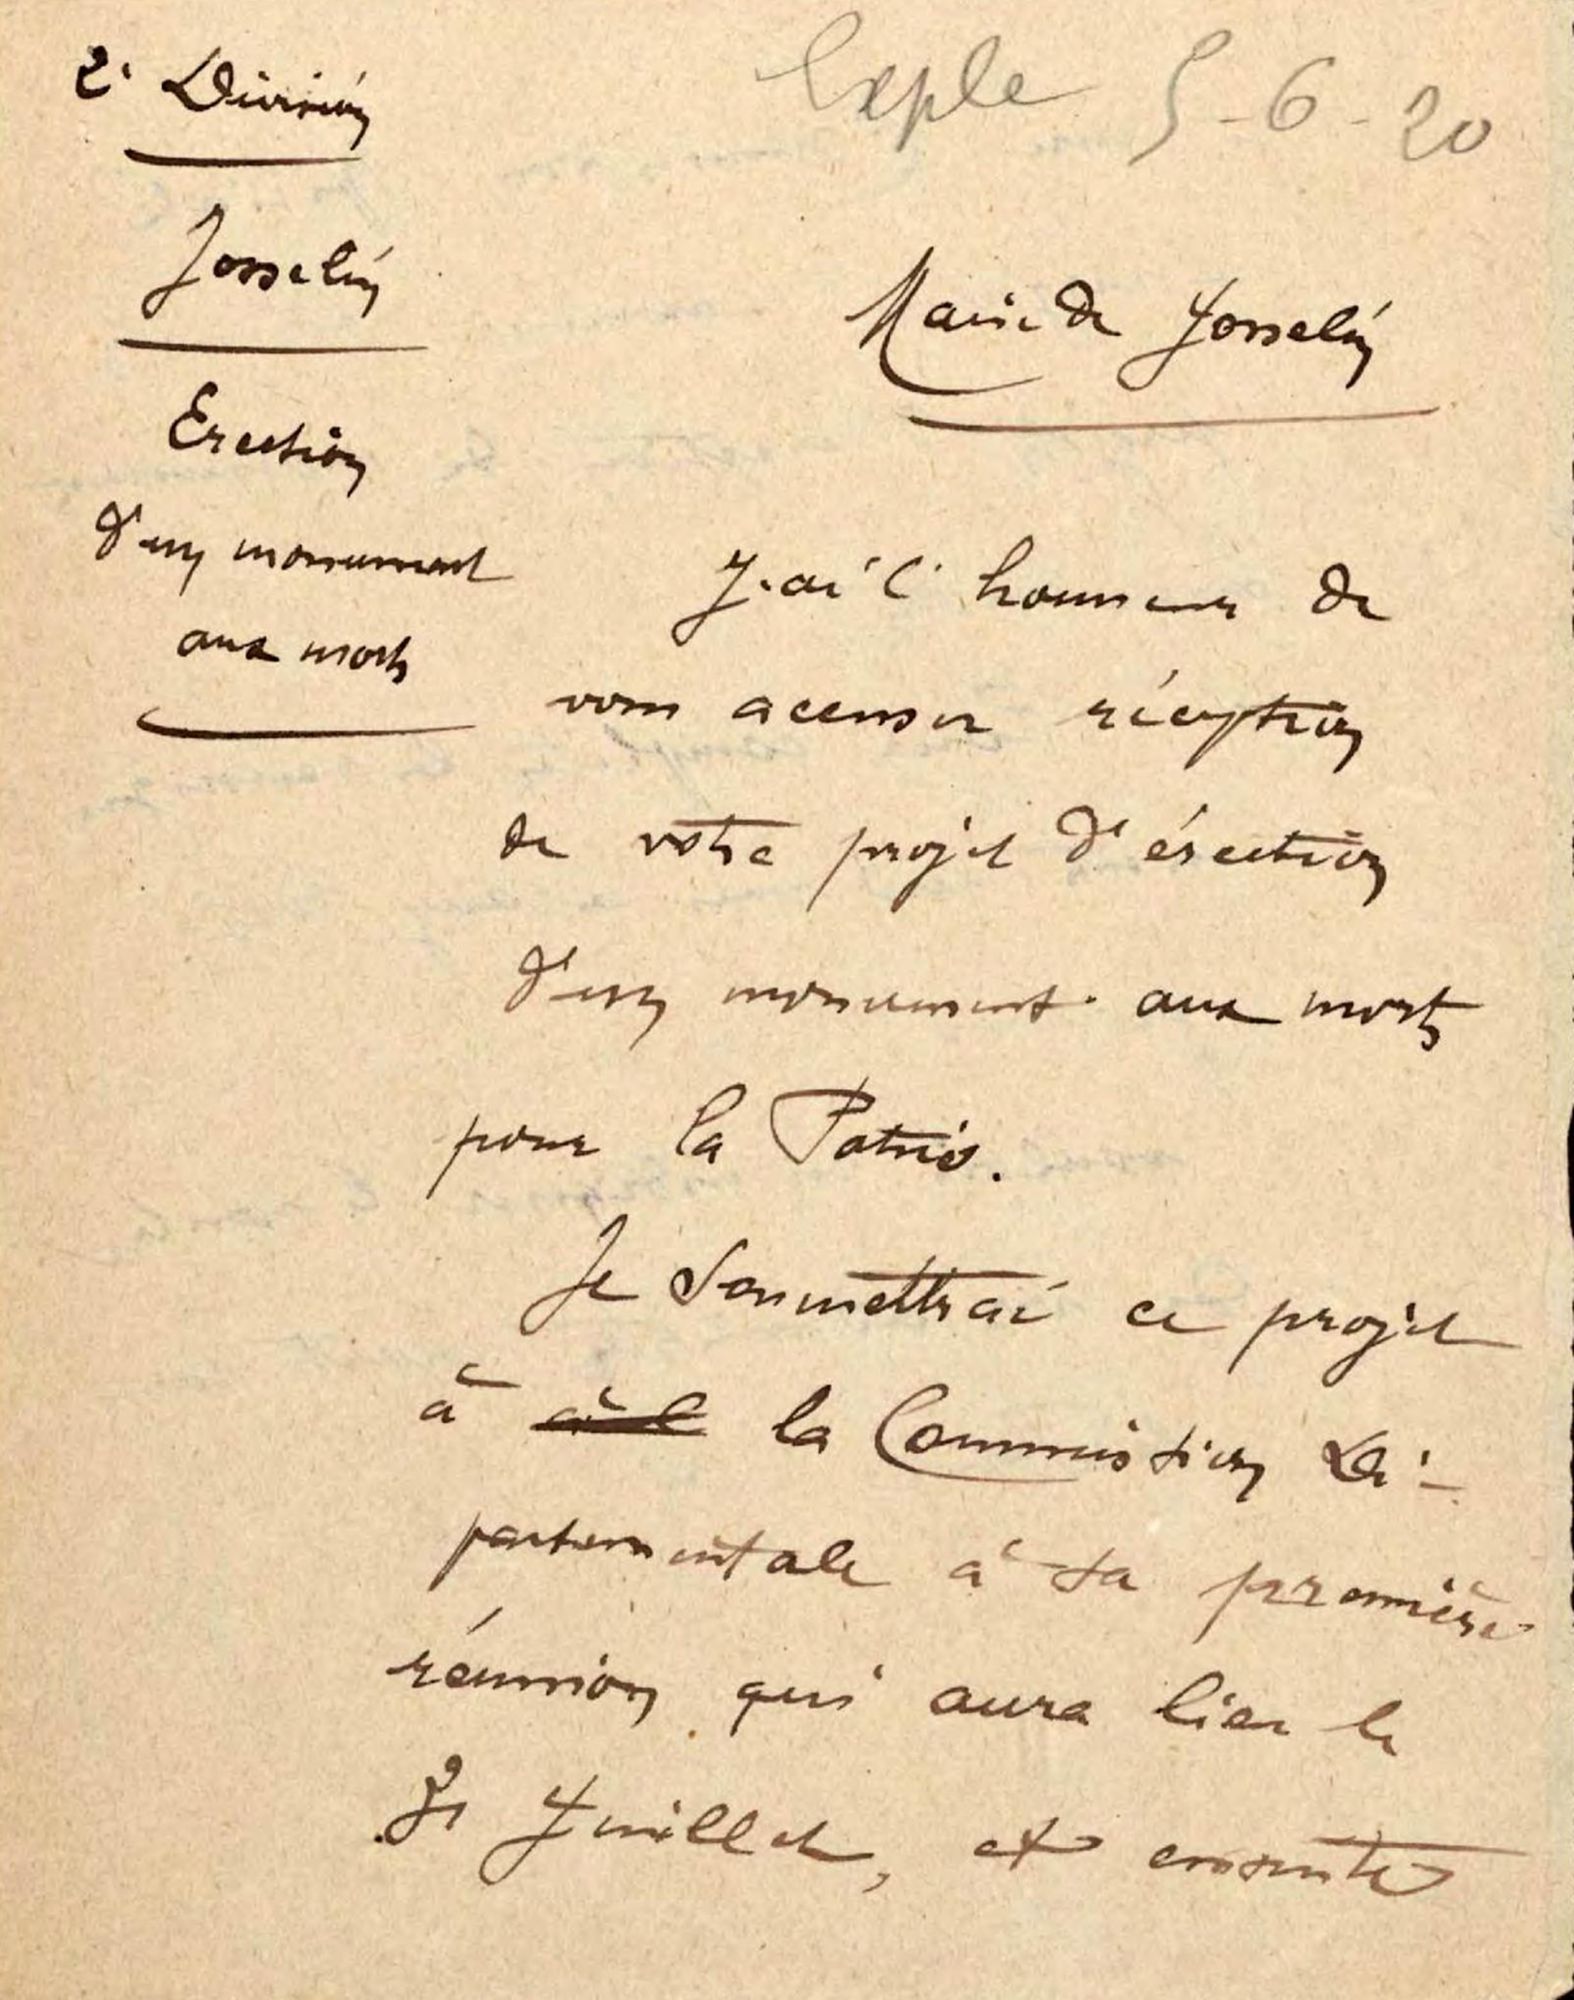 2e Division
Josselin
Erection
d'un monument
aux morts
Exple 5-6-20
Maire de Josselin
J'ai l'honneur de
vous accuser réception
de votre projet d'érection
d'un monument aux morts
pour la Patrie.
Je soumettrai ce projet
à à l la Commission Dé-
partementale à sa première
réunion qui aura lieu le
Juillet, et ensuite